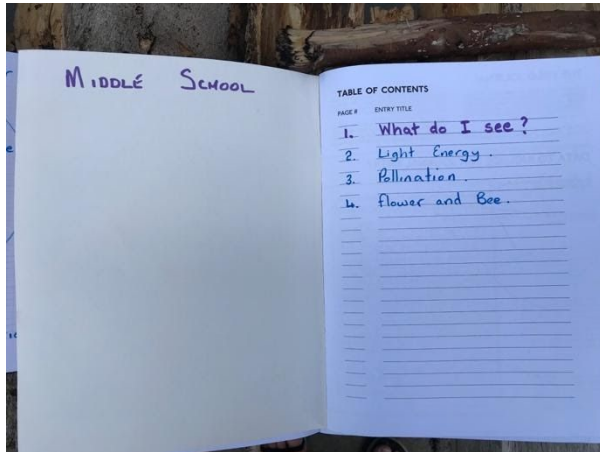 MIDDLE SCHOOL
TABLE OF CONTENTS
PAGE # ENTRY TITLE
1. What do I see?
2. Light Energy.
3. Pollination.
4. flower and Bee.